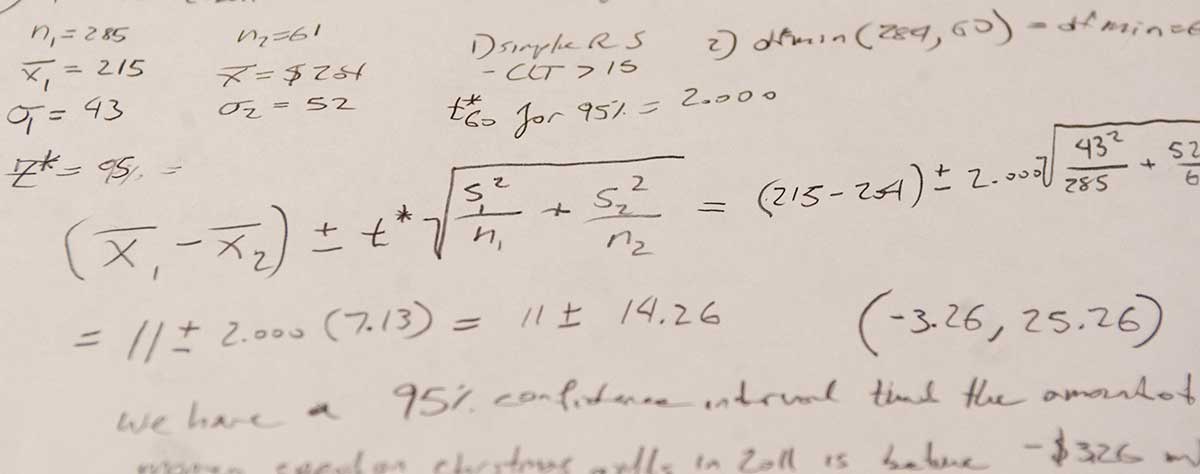 n₁ = 285 n₂ = 61 1) simple R S 2) df min (284, 60) = df min = 6
x̄₁ = 215 x̄ = $ 204 - CLT > 15
σ₁ = 43 σ₂ = 52 t*₆₀ for 95% = 2.000
Z* = 95% =
(x̄₁ - x̄₂) ± t* √(s₁²/n₁ + s₂²/n₂) = (215 - 204) ± 2.000 √(43²/285 + 52/6
= 11 ± 2.000 (7.13) = 11 ± 14.26 (-3.26, 25.26)
we have a 95% confidence interval that the amount of
in 2011 is -$3.26